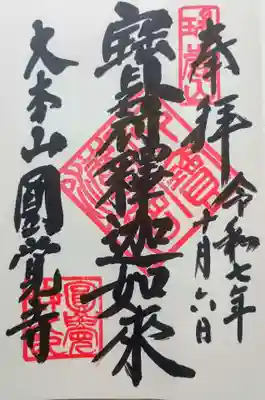 奉拝
令和七年
十月六日
寶冠釋迦如來
大本山圓覺寺